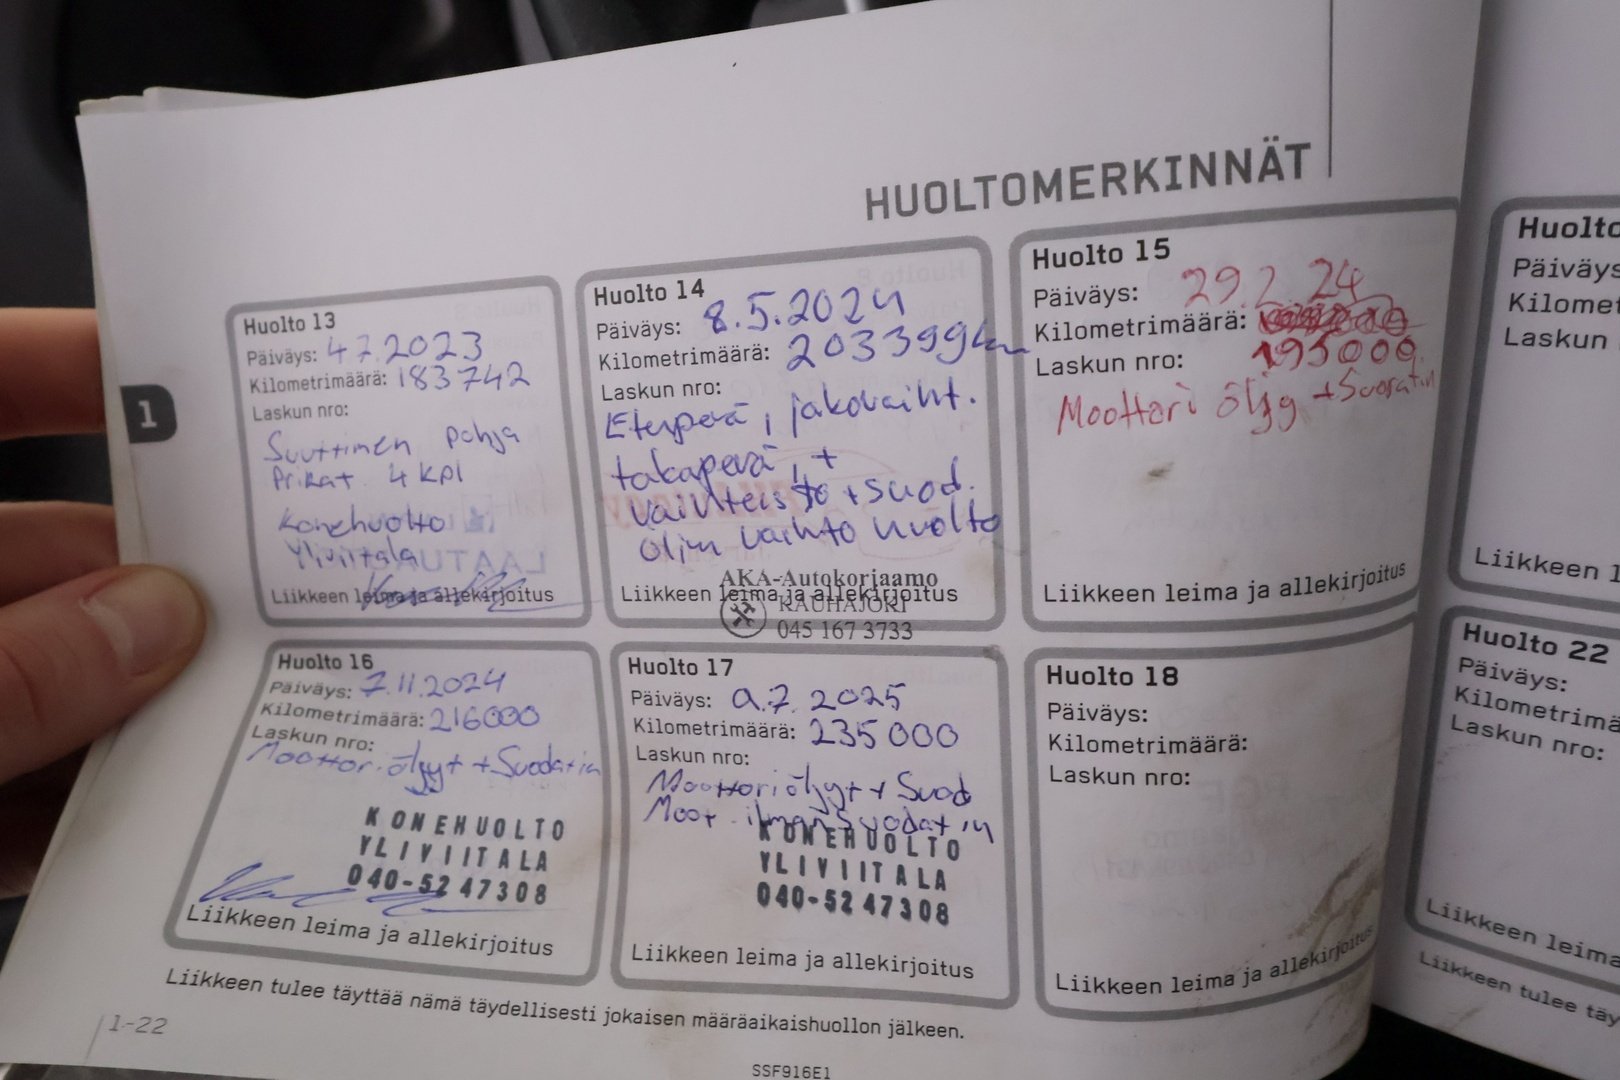 HUOLTOMERKINNÄT
1
Huolto 13
Päiväys: 4.7.2023
Kilometrimäärä: 183742
Laskun nro:
Suuttimen pohja
Prikat 4 kpl
Konehuolto
Yliviitala
Liikkeen leima ja allekirjoitus
Huolto 14
Päiväys: 8.5.2024
Kilometrimäärä: 203399km
Laskun nro:
Etuperä, jakovaiht.
takaperä, +
vaihteisto + suod.
öljyn vaihto huolto
AKA-Autokorjaamo
Liikkeen leima ja allekirjoitus
KAUHAJOKI
045 167 3733
Huolto 15
Päiväys: 29.2.24
Kilometrimäärä:
195000
Laskun nro:
Moottori öljy + Suodatin
Liikkeen leima ja allekirjoitus
Huolto 16
Päiväys: 7.11.2024
Kilometrimäärä: 216000
Laskun nro:
Moottori öljyt + Suodatin
KONEHUOLTO
YLIVIITALA
040-5247308
Liikkeen leima ja allekirjoitus
Huolto 17
Päiväys: 9.7.2025
Kilometrimäärä: 235000
Laskun nro:
Moottoriöljyt + Suod
Moot. ilmansuodatin
KONEHUOLTO
YLIVIITALA
040-5247308
Liikkeen leima ja allekirjoitus
Huolto 18
Päiväys:
Kilometrimäärä:
Laskun nro:
Liikkeen leima ja allekirjoitus
Liikkeen tulee täyttää nämä täydellisesti jokaisen määräaikaishuollon jälkeen.
1-22
SSF916E1
Huolto
Päiväys
Kilomet
Laskun
Liikkeen l
Huolto 22
Päiväys:
Kilometrimä
Laskun nro:
Liikkeen leima
Liikkeen tulee täy